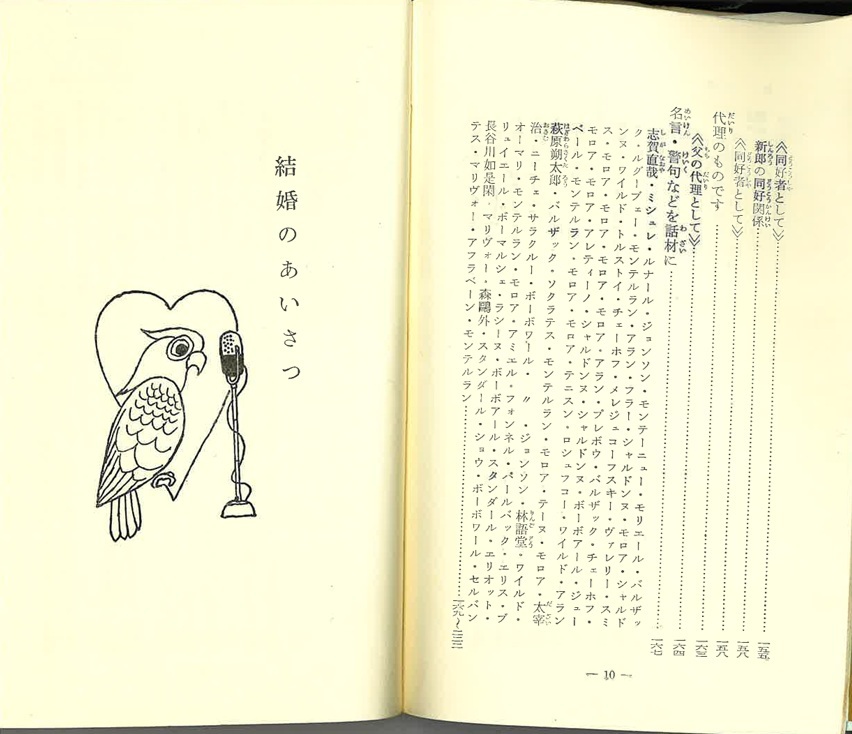 ≪同好者として≫……一五五
新郎の同好関係……一五八
≪同好者として≫……一五八
代理のものです……一六三
≪父の代理として≫……一六四
名言・警句などを話材に……一六七
志賀直哉・ミシュレ・ルナール・ジョンソン・モンテーニュー・モリエール・バルザッ
ク・ルグーブェー・モンテルラン・アラン・フラー・シャルドンヌ・モロア・シャルド
ンヌ・ワイルド・トルストイ・チェーホフ・メレジュコーフスキー・ヴァレリー・スミ
ス・モロア・モロア・モロア・モロア・アラン・プレボウ・バルザック・チェーホフ・
モロア・モロア・アレティーノ・シャルドンヌ・シャルドンヌ・ボーボアール・ジュー
ベール・モンテルラン・モロア・モロア・テニスン・ロシュフコー・ワイルド・アラン
萩原朔太郎・バルザック・ソクラテス・モンテルラン・モロア・テーヌ・モロア・太宰
治・ニーチェ・サラクルー・ボーボワール・〃・ジョンソン・林語堂・ワイルド・
オーマリ・モンテルラン・モロア・アミエル・フォンネル・パールバック・エリス・ブ
リュイエール・ボーマルシェ・ラシーヌ・ボーボアール・スタンダール・エリオット・
長谷川如是閑・マリヴォー・森鷗外・スタンダール・ショウ・ボーボワール・セルバン
テス・マリヴォー・アフラベーン・モンテルラン……一六九～二二二
— 10 —
結婚のあいさつ